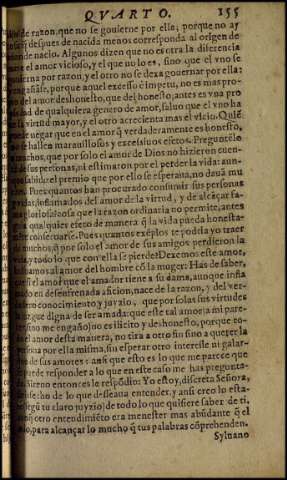 QVARTO. 155
de razon, que no se gouierne por ella; porque no ay
despues de nacida menos corresponda al origen de
donde nacio. Algunos dizen que no es otra la diferencia
entre el amor vicioso, y el que no lo es, sino que el vno se
gouierna por razon, y el otro no se dexa gouernar por ella:
engañase, porque aquel excesso è impetu, no es mas pro-
del amor deshonesto, que del honesto, antes es vna pro
de qualquiera genero de amor, saluo que el vno ha
la virtud mayor, y el otro acrecienta mas el vicio. Quiē
puede negar que en el amor q̃ verdaderamente es honesto,
no se hallen marauillosos y excessiuos efetos. Preguntēlo
a muchos, que por solo el amor de Dios no hizieron cuen-
de sus personas, ni estimaron por el perder la vida: aun-
sabido el premio que por ello se esperaua, no dauā mu
Pues quantos han procurado consumir sus personas
vidas, inflamados del amor de la virtud, y de alcāçar fa-
gloriosa? cosa que la razon ordinaria no permite, antes
qualquier efeto de manera q̃ la vida pueda honesta-
conseruarse. Pues quantos exēplos te podria yo traer
muchos, q̃ por solo el amor de sus amigos perdieron la
vida, y todo lo que con ella se pierde? Dexemos este amor,
boluamos al amor del hombre cō la muger: Has de saber,
que si el amor que el amador tiene a su dama, aunque infla
mado en desenfrenada aficion, nace de la razon, y del ver-
dadero conocimiento y juyzio, que por solas sus virtudes
la juzgue digna de ser amada: que este tal amor (a mi pare-
cer, y no me engaño) no es ilicito y deshonesto, porque to-
do el amor desta manera, no tira a otro fin sino a querer la
persona por ella misma, sin esperar otro interesse ni galar-
don de sus amores: ansi que esto es lo que me parece que
puede responder a lo que en este caso me has pregunta-
do. Sireno entonces le respōdio: Yo estoy, discreta Señora,
satisfecho de lo que desseaua entender, y ansi creo lo esta-
(segū tu claro juyzio) de todo lo que quisiere saber de ti,
aunq̃ otro entendimiēto era menester mas abūdante q̃ el
mio, para alcançar lo mucho q̃ tus palabras cōprehenden.
Syluano